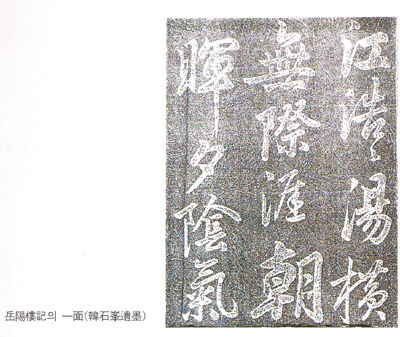 江浩〻湯橫
無際涯朝
暉夕陰氣
岳陽樓記의 一面(韓石峯遺墨)